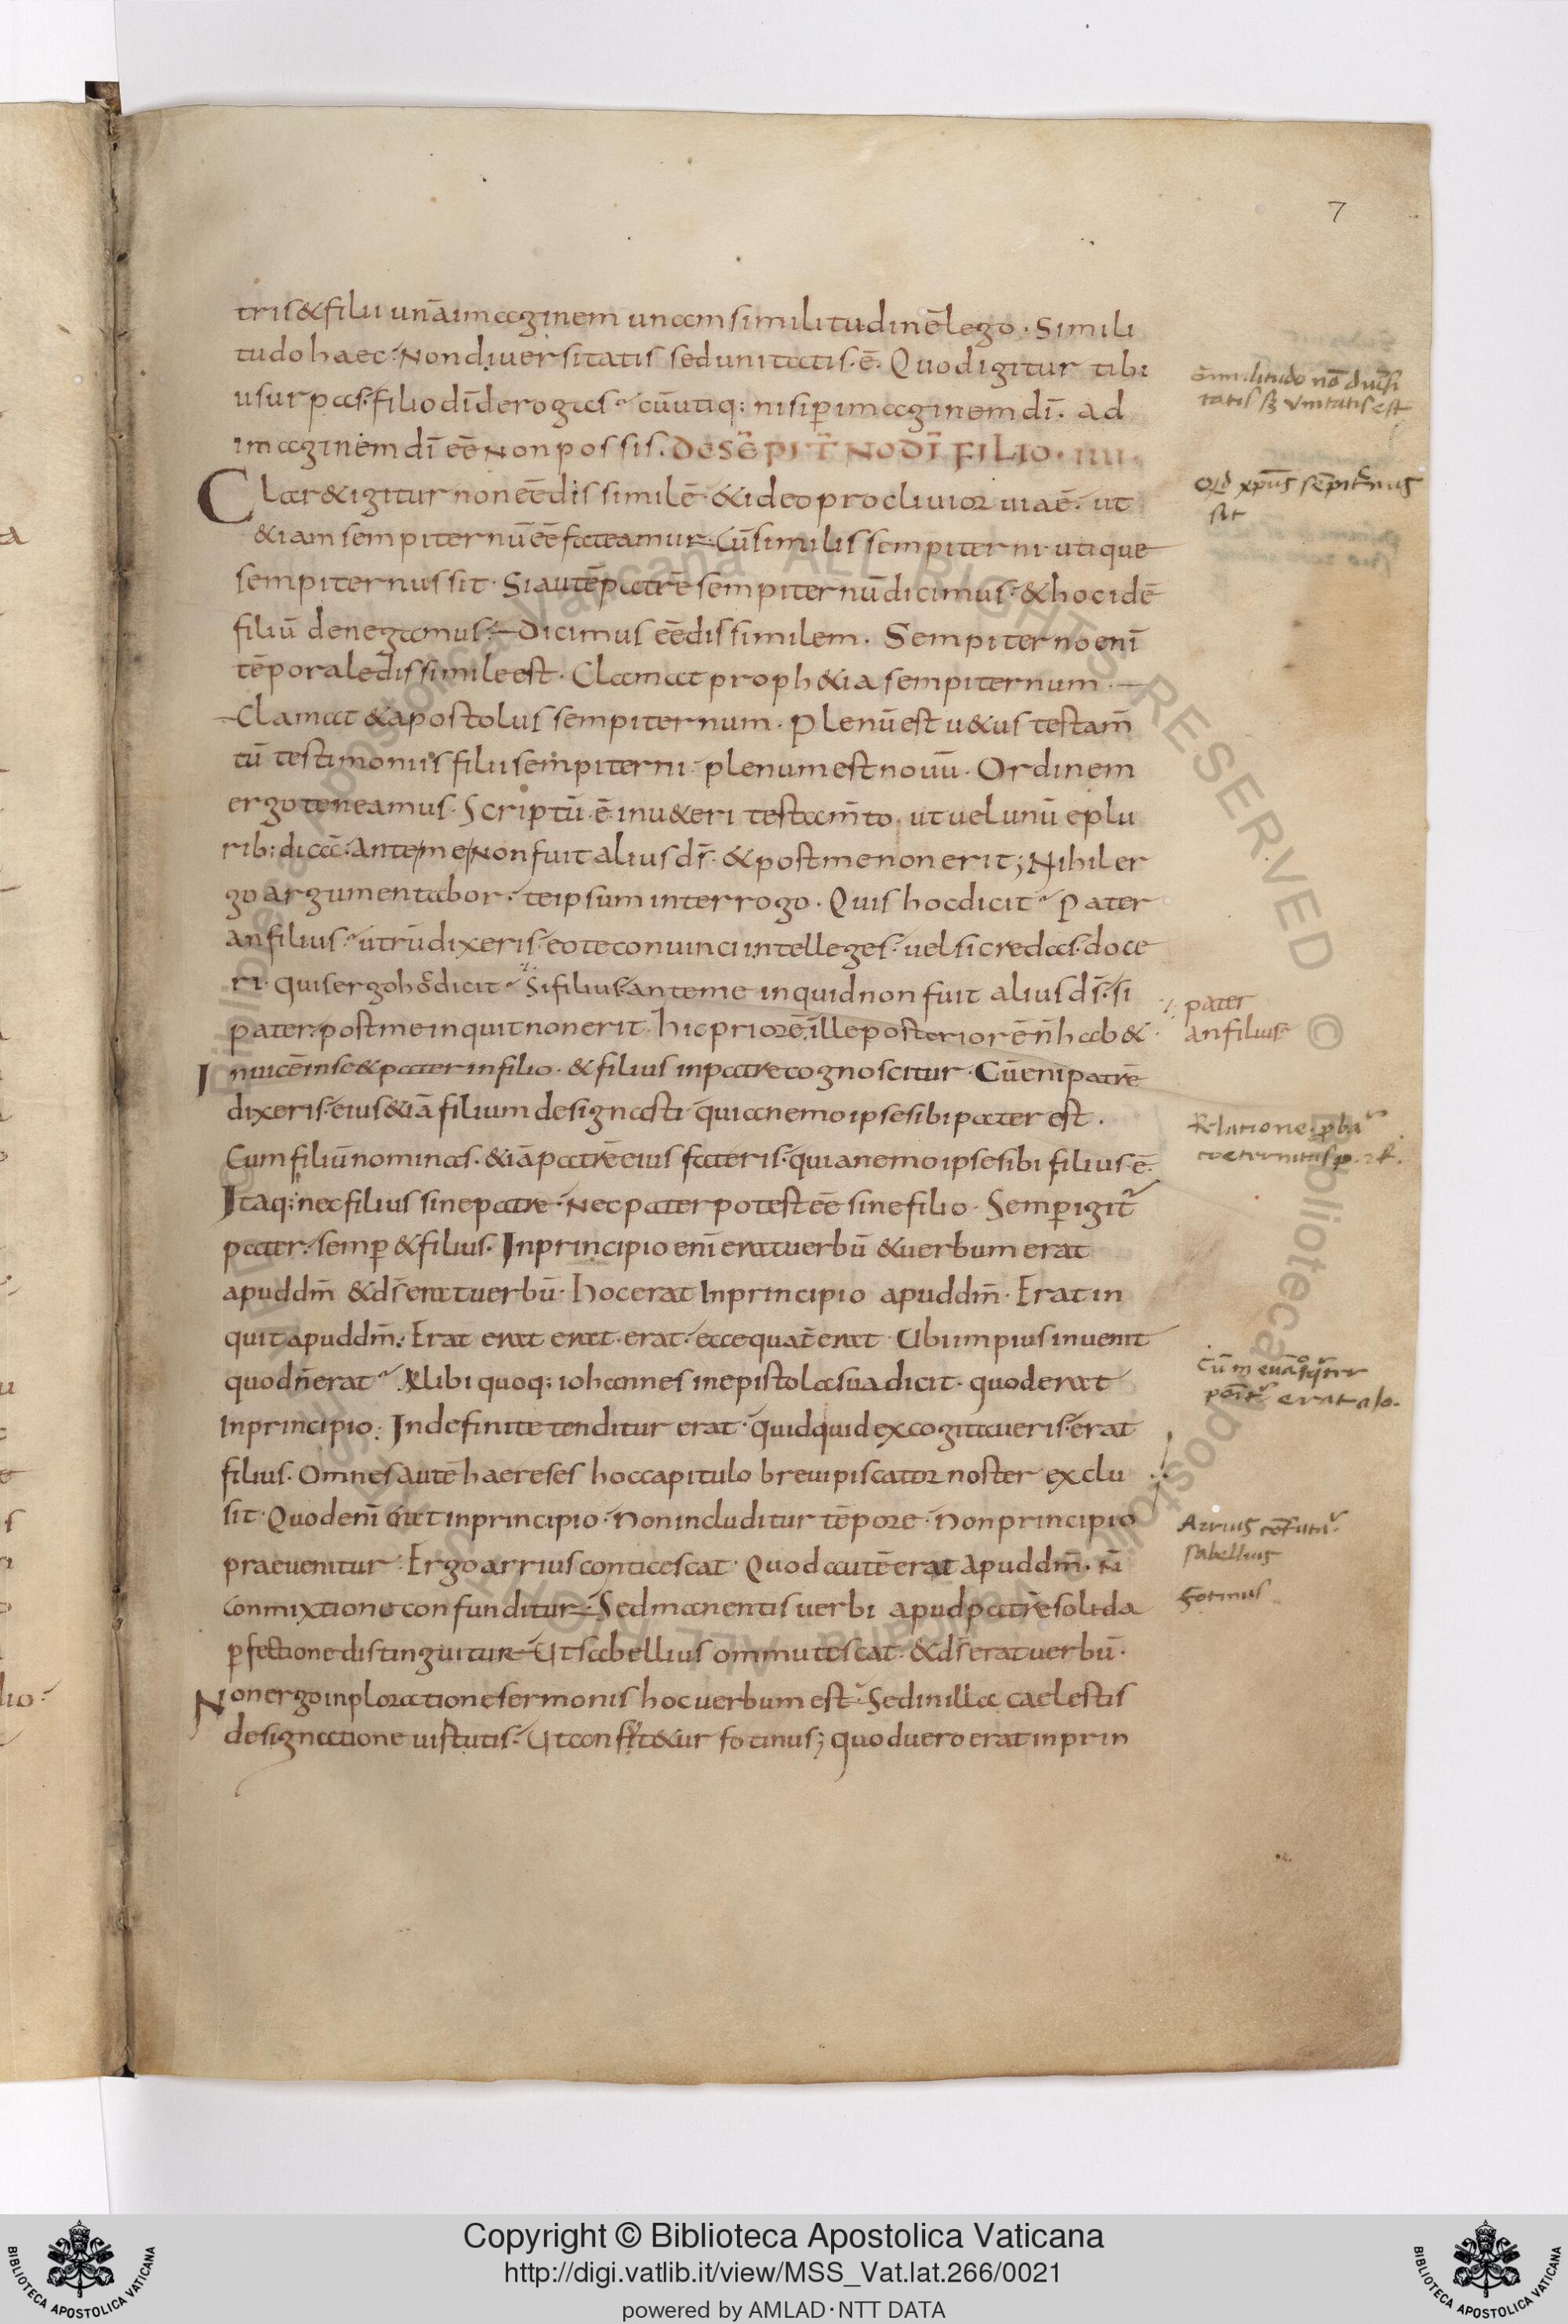 7
tris & filii unā imaginem unam similitudinē lego · Simili
tudo haec · Non diuersitatis sed unitatis · ē · Quod igitur tibi
usurpas · filio dī derogas · cū utiq: nisi p̄ imaginem dī · ad
imaginem dī eē non possis · DE SĒPIT̄NO DĪ FILIO · IIII ·
Clar& igitur non eē dissimilē · & ideo procliuior uia ē · ut
&iam sempiternū eē fateamur · Cū similis sempiterni utique
sempiternus sit · Si autē patrē sempiternū dicimus · & hoc idē
filiū denegamus · dicimus eē dissimilem · Sempiterno enī
tēporale dissimile est · Clamat proph&ia sempiternum ·
Clamat & apostolus sempiternum · Plenū est u&us testam̄
tū testimoniis filii sempiterni · plenum est nouū · Ordinem
ergo teneamus · Scriptū · ē · in u&eri testam̄to · ut uel unū e plu
rib: dicā · Ante me non fuit alius d̄s · & post me non erit; Nihil er
go argumentabor · te ipsum interrogo · Quis hoc dicit · Pater
an filius · utrū dixeris · eo te conuinci intelleges · uel si credas · doce
ri · Quis ergo hoc dicit · Si filius · ante me inquid non fuit alius d̄s · si
pater · post me inquit non erit · hic priorē · ille posteriorē n̄ hab&
Inuicē in se & pater in filio · & filius in patre cognoscitur · Cū enī patrē
dixeris · eius &iā filium designasti · quia nemo ipse sibi pater est ·
Cum filiū nominas · &iā patrē eius fateris · quia nemo ipse sibi filius · ē ·
Itaq: nec filius sine patre · Nec pater potest eē sine filio · Semp̄ igit̄
pater · semp̄ & filius · In principio enī erat uerbū & uerbum erat
apud dm̄ & d̄s erat uerbū · hoc erat In principio apud dm̄ · Erat in
quit apud dm̄ · Erat erat erat · erat · ecce quat̄ erat · Ubi impius inuenit
quod n̄ erat · Alibi quoq: iohannes in epistola sua dicit · quod erat
In principio · Indefinite tenditur erat · quidquid excogitaueris · erat
filius · Omnes autē haereses hoc capitulo breui piscator noster exclu
sit · Quod enī erat in principio · non includitur tēpore · non principio
praeuenitur · Ergo arrius conticescat · Quod autē erat apud dm̄ · N̄
conmixtione confunditur · Sed manentis uerbi apud patrē solida
p̄fectione distinguitur · Ut sabellius ommutescat · & d̄s erat uerbū ·
Non ergo in ploratione sermonis hoc uerbum est · Sed in illa caelestis
designatione uistutis · Ut confit&ur fotinus; quod uero erat in prin
similitudo nō diu͛si
tatis sꝫ Vnitatis est
Qd xpūs sēpit͛nus
sit
pater
an filius
Relatione ꝓbat͛
coeternitas
Cū m
erat
Arrius cōfutat͛
sabellius
fotinus
Copyright © Biblioteca Apostolica Vaticana
http://digi.vatlib.it/view/MSS_Vat.lat.266/0021
powered by AMLAD·NTT DATA
BIBLIOTECA APOSTOLICA VATICANA
BIBLIOTECA APOSTOLICA VATICANA